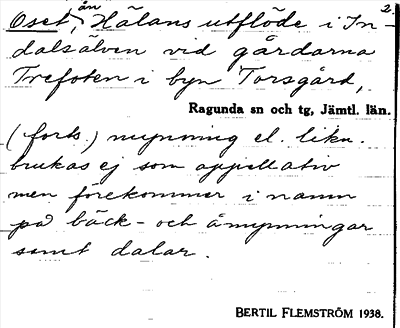 Oset, ån Hälans utflöde i In- 2.
dalsälven vid gårdarna
Trefoten i byn Torsgård,
Ragunda sn och tg, Jämtl. län.
(forts.) mynning el. likn.
brukas ej som appellativ
men förekommer i namn
på bäck- och åmynningar
samt dalar.
BERTIL FLEMSTRÖM 1938.